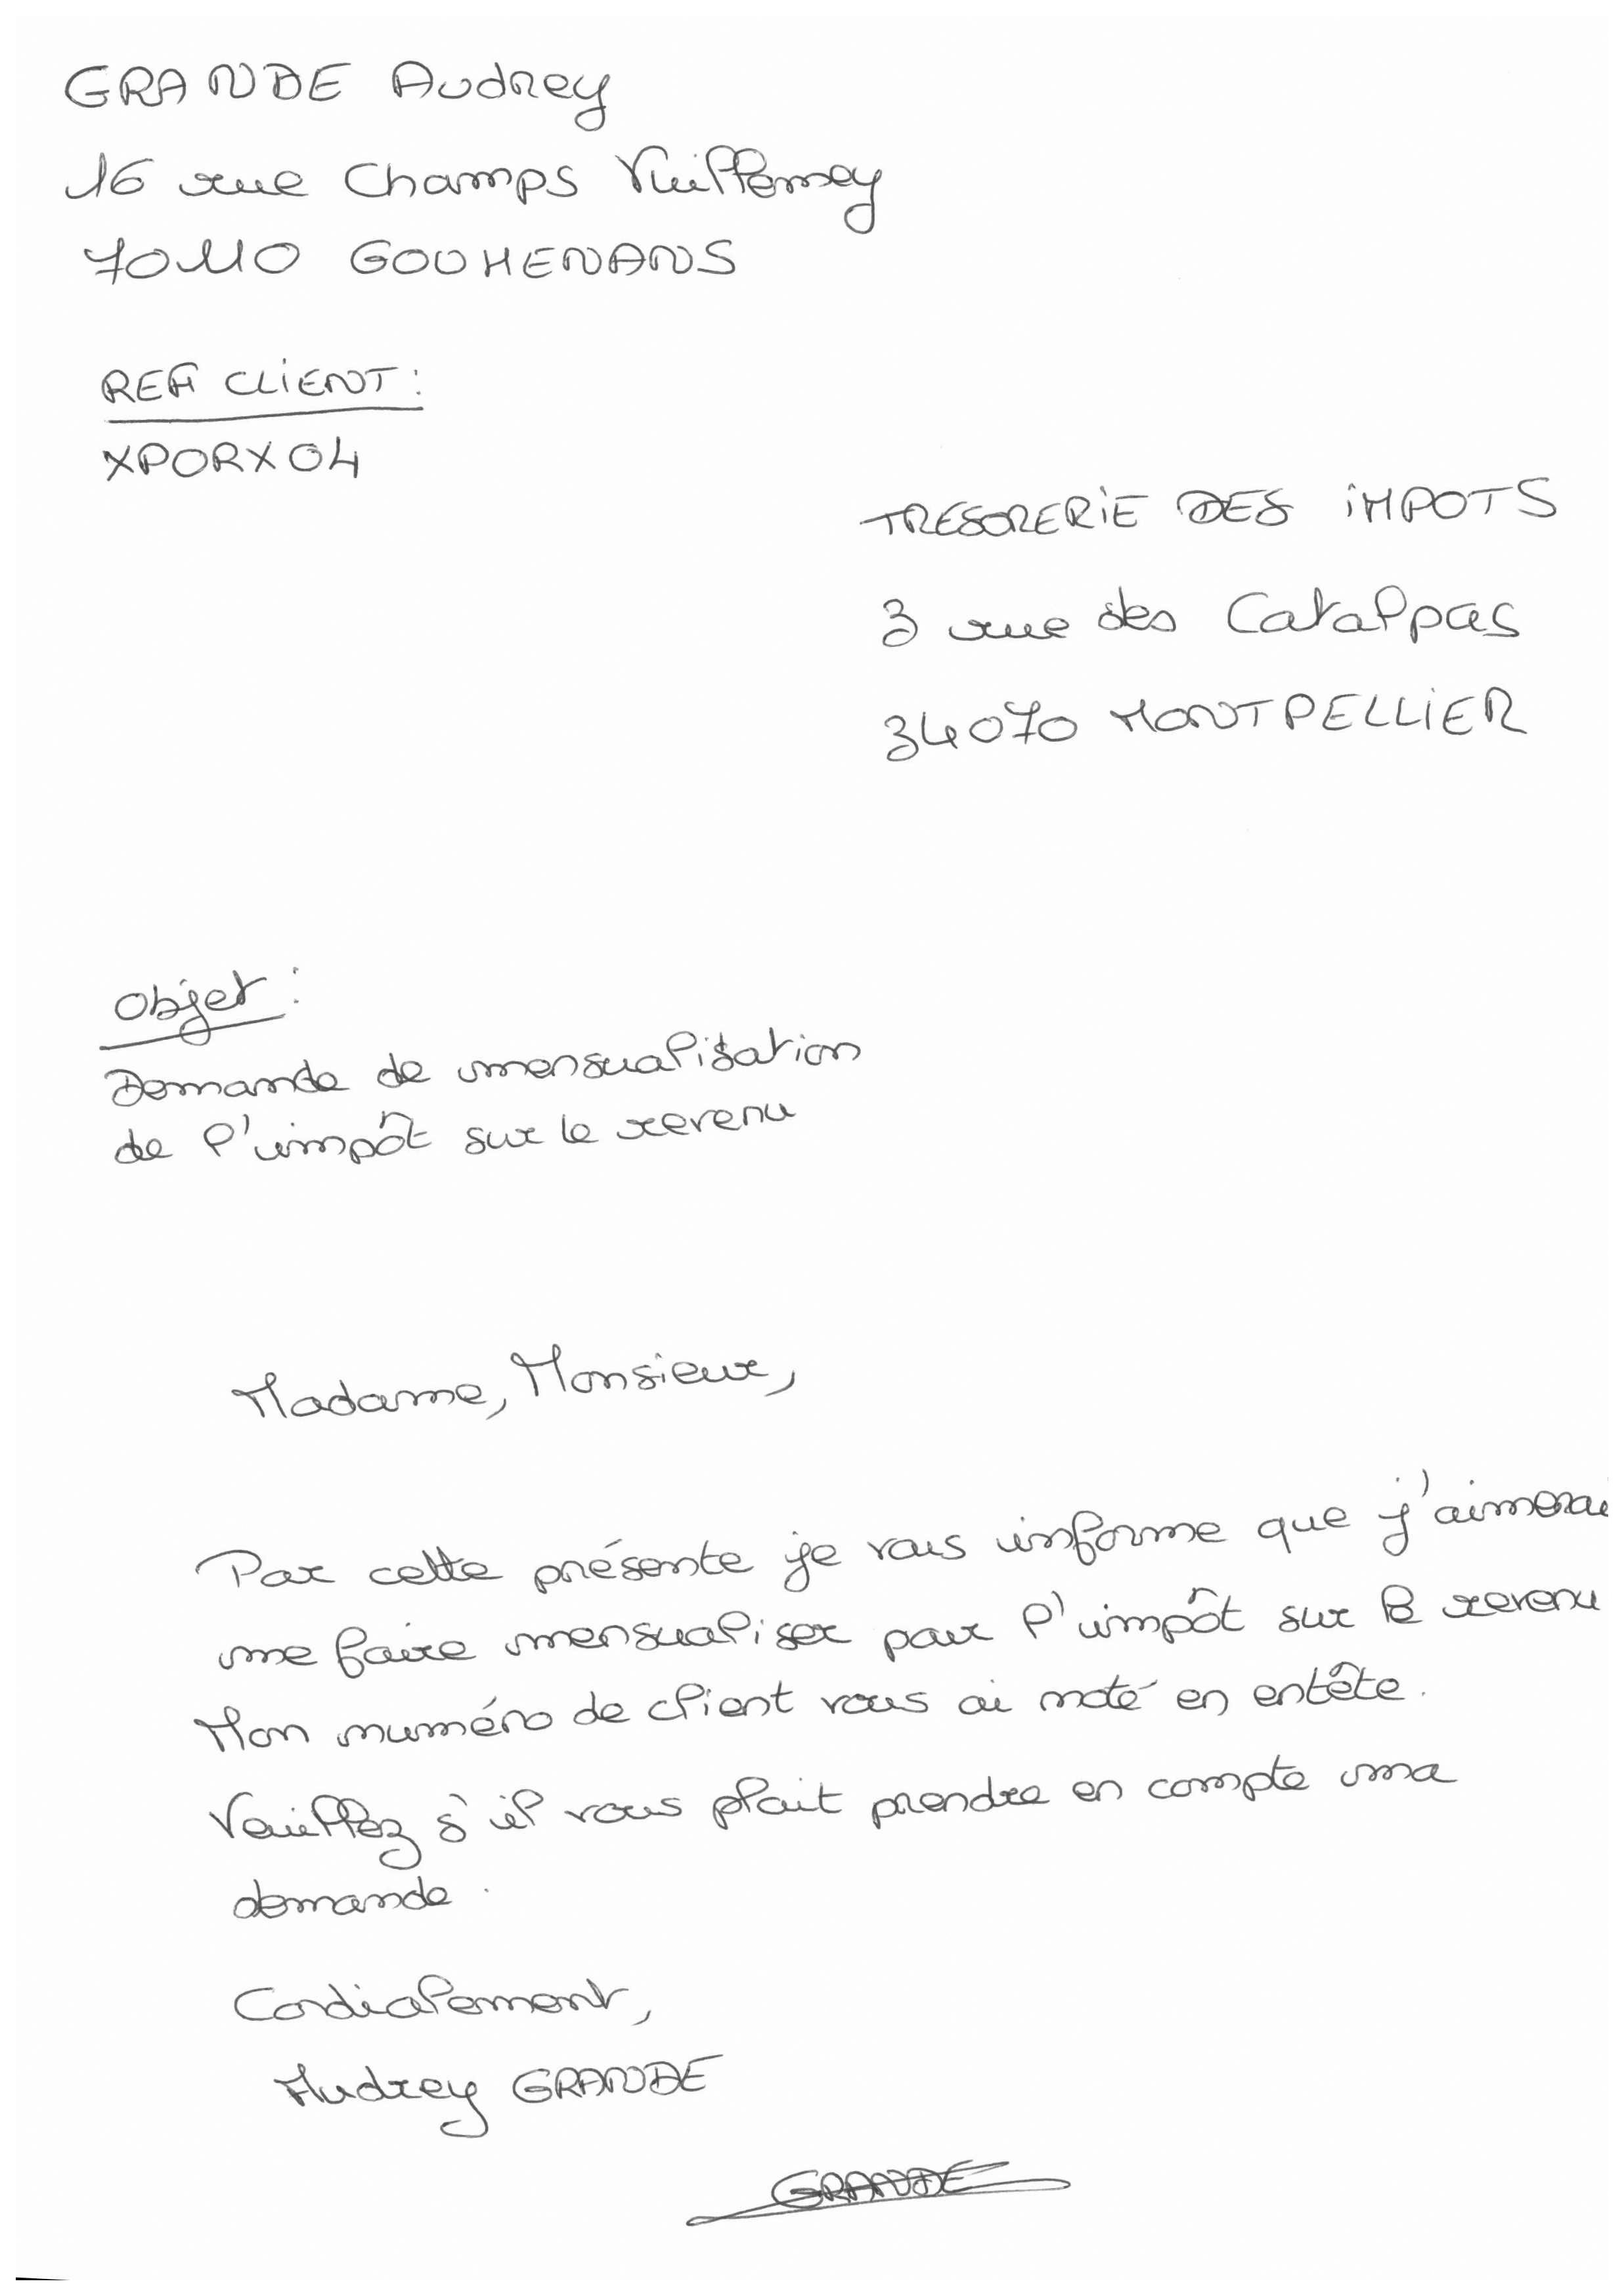 GRANDE Audrey
16 rue Champs Vuillemey
70110 GOUHENANS
REF CLIENT :
XPORX04
TRESORERIE DES IMPOTS
3 rue des Catalpas
34070 MONTPELLIER
Objet :
Demande de mensualisation
de l'impôt sur le revenu
Madame, Monsieur,
Par cette présente je vous informe que j'aimerai
me faire mensualiser pour l'impôt sur le revenu
Mon numéro de client vous ai noté en entête.
Veuillez s'il vous plait prendre en compte ma
demande.
Cordialement,
Audrey GRANDE
GRANDE